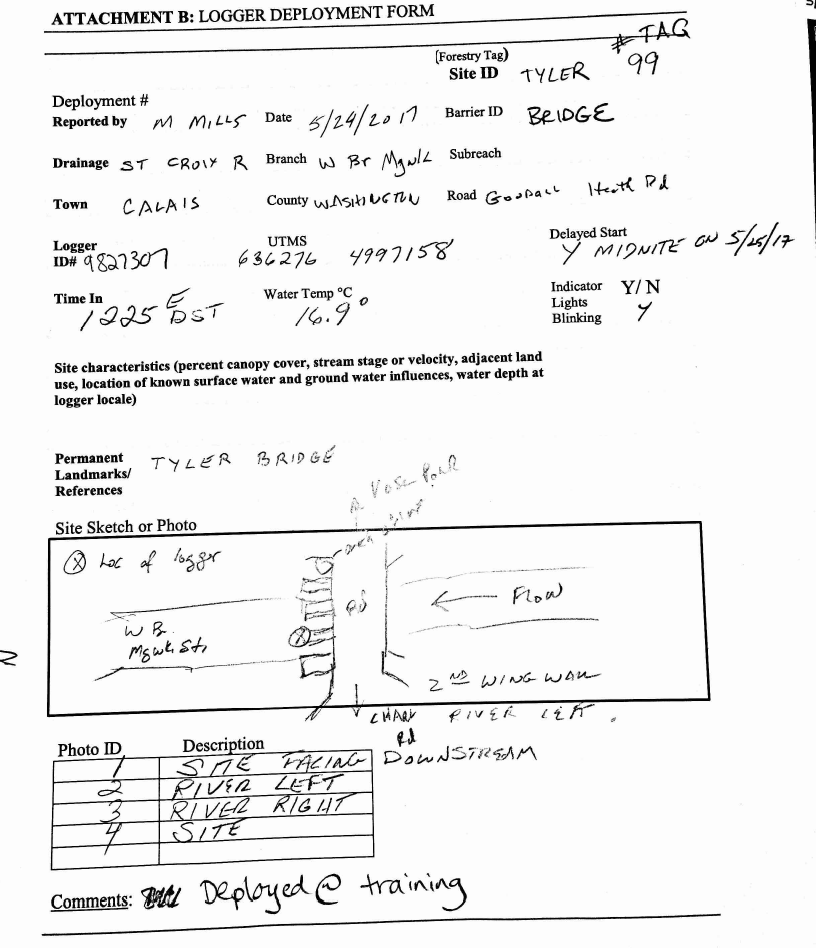 ATTACHMENT B: LOGGER DEPLOYMENT FORM
# TAG
(Forestry Tag)
Site ID TYLER 99
Deployment #
Reported by M MILLS Date 5/24/2017 Barrier ID BRIDGE
Drainage ST CROIX R Branch W Br Mgwk Subreach
Town CALAIS County WASHINGTON Road GOODALL Heath Rd
Logger
ID# 9827307
UTMS
636276 4997158
Delayed Start
Y MIDNITE ON 5/25/17
Time In
1225 E DST
Water Temp °C
16.9°
Indicator Y/N
Lights
Blinking Y
Site characteristics (percent canopy cover, stream stage or velocity, adjacent land
use, location of known surface water and ground water influences, water depth at
logger locale)
Permanent
Landmarks/
References
TYLER BRIDGE
Vose Pond
Site Sketch or Photo
Ⓧ Loc of logger
Rd
← FLOW
W B.
Mgwk. St.
2ND WING WALL
RIVER LEFT.
Rd
Photo ID Description
1 SITE FACING DOWNSTREAM
2 RIVER LEFT
3 RIVER RIGHT
4 SITE
Comments: Deployed @ training